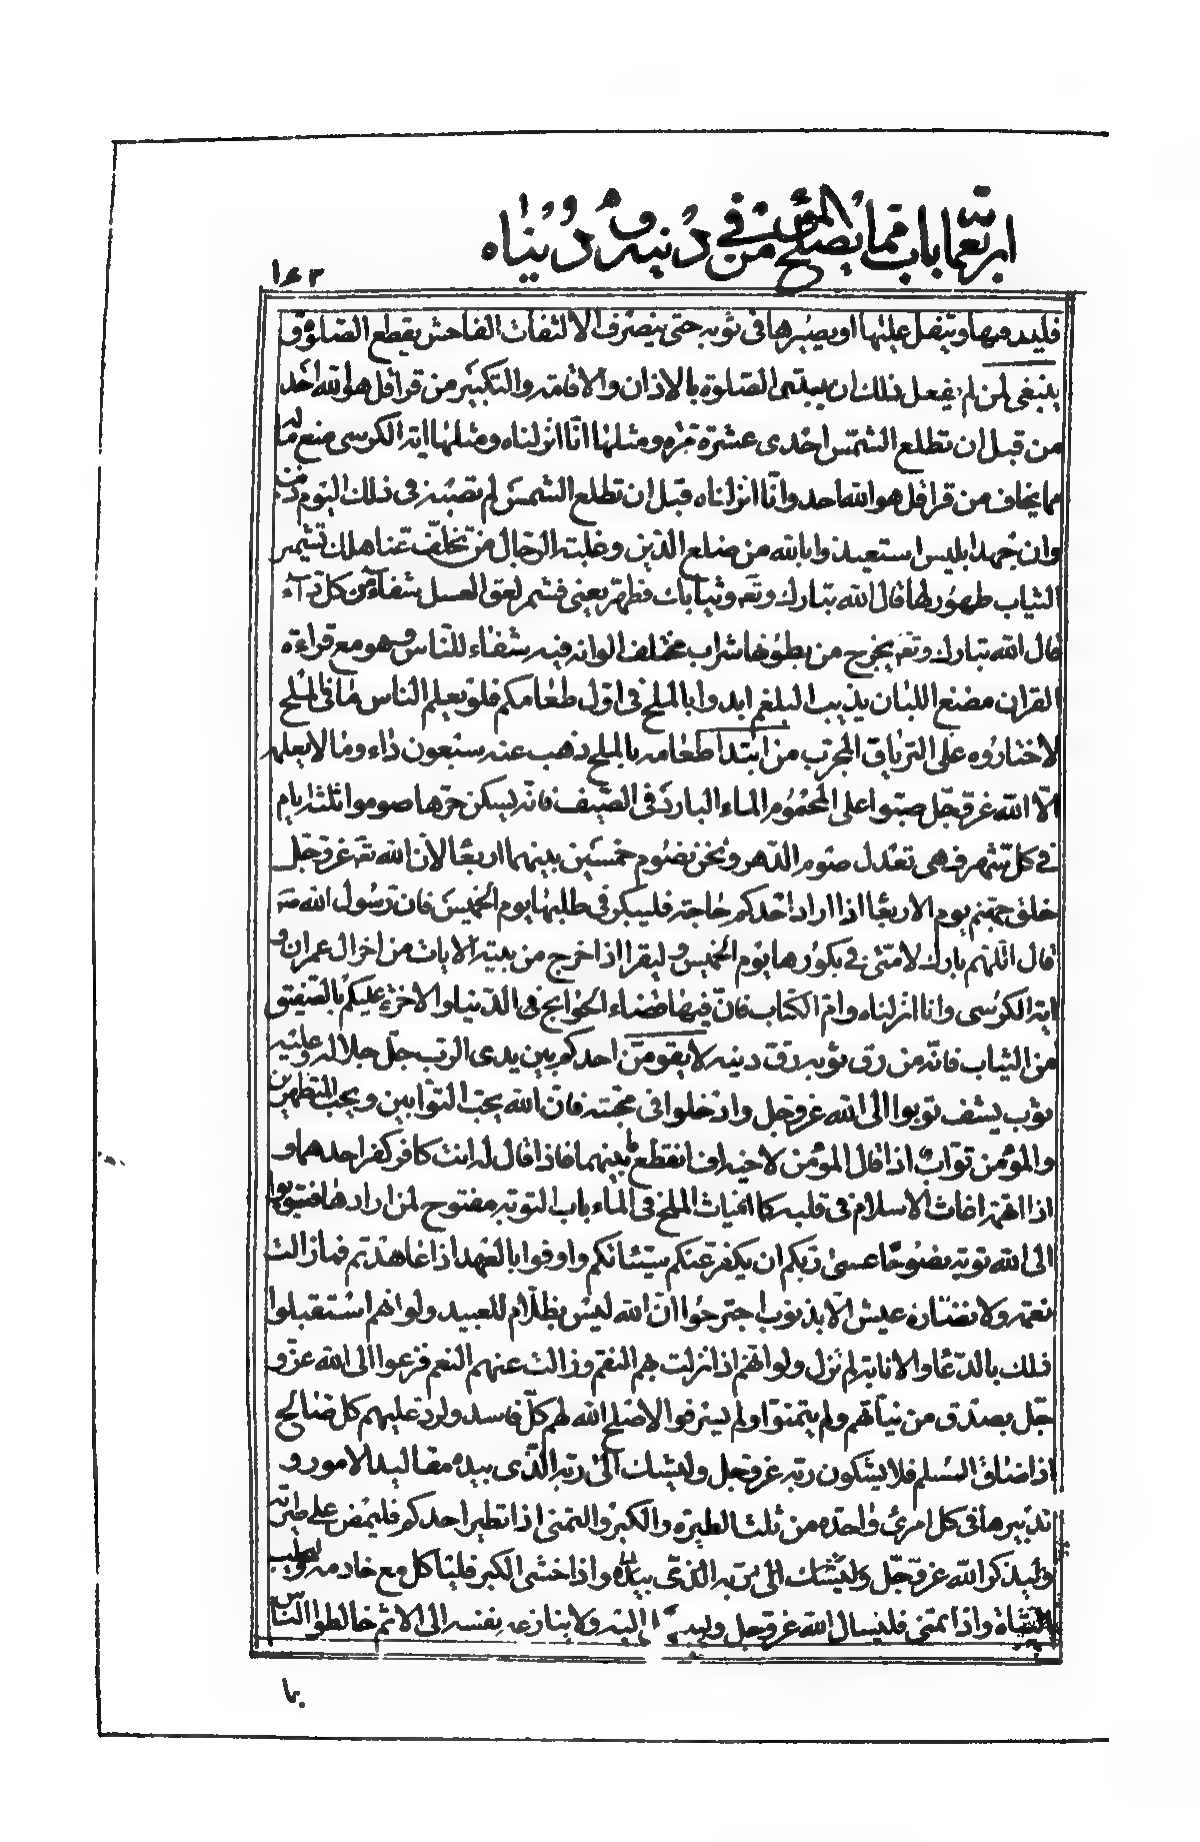 اربعمائة باب مما يصلح المؤمن في دينه و دنياه
١٤٣
فليدفنها ويتفل عليها او يصيرها في ثوبه حتى ينصرف الالتفات الفاحش يقطع الصلوة و
ينبغى لمن لم يفعل ذلك ان يبتدى الصلوة بالاذان والاقامة والتكبير من قرا قل هو الله احد
من قبل ان تطلع الشمس احدى عشرة مرة ومثلها انا انزلناه ومثلها اية الكرسى منع ماله
مما يخاف من قرا قل هو الله احد وانا انزلناه قبل ان تطلع الشمس لم تصبه في ذلك اليوم ذنب
وان جهد ابليس استعيذوا بالله من ضلع الدين وغلبة الرجال من تخلف عنا هلك تشمير
الثياب طهور لها قال الله تبارك وتع وثيابك فطهر يعنى فشمر لعق العسل شفاء من كل داء
قال الله تبارك وتع يخرج من بطونها شراب مختلف الوانه فيه شفاء للناس وهو مع قراءة
القران مضغ اللبان يذيب البلغم ابدوا بالملح في اول طعامكم فلو يعلم الناس ما في الملح
لاختاروه على الترياق المجرب من ابتدا طعامه بالملح ذهب عنه سبعون داء وما لا يعلمه
الا الله عز وجل صبوا على المحموم الماء البارد في الصيف فانه يسكن حرها صوموا ثلثة ايام
في كل شهر فهى تعدل صوم الدهر ونحن نصوم خمسين بينهما اربعا لان الله تع عز وجل
خلق جهنم يوم الاربعا اذا اراد احدكم حاجة فليبكر في طلبها يوم الخميس فان رسول الله ص
قال اللهم بارك لامتى في بكورها يوم الخميس وليقرا اذا خرج من بيته الايات من اخر ال عمران و
اية الكرسى وانا انزلناه وام الكتاب فان فيها قضاء الحوايج في الدنيا والاخرة عليكم بالصفيق
من الثياب فانه من رق ثوبه رق دينه لا يقومن احدكم بين يدى الرب جل جلاله وعليه
ثوب يشف توبوا الى الله عز وجل وادخلوا في محبته فان الله يحب التوابين ويحب المتطهرين
والمؤمن تواب اذا قال المؤمن لاخيه اف انقطع ما بينهما فاذا قال له انت كافر كفر احدهما و
اذا اتهمه انماث الاسلام في قلبه كما انمياث الملح في الماء باب التوبة مفتوح لمن ارادها فتوبوا
الى الله توبة نصوحا عسى ربكم ان يكفر عنكم سيئاتكم واوفوا بالعهد اذا عاهدتم فما زالت
نعمة ولا نضارة عيش الا بذنوب اجترحوا ان الله ليس بظلام للعبيد ولو انهم استقبلوا
ذلك بالدعا والانابة لم تزل ولو انهم اذا نزلت بهم النقم وزالت عنهم النعم فزعوا الى الله عز و
جل بصدق من نياتهم ولم يتمنوا ولم يسرفوا لاصلح الله لهم كل فاسد ولرد عليهم كل صالح
اذا ضاق المسلم فلا يشكون ربه عز وجل وليشك الى ربه الذى بيده مقاليد الامور و
تدبيرها في كل امرئ واحدة من ثلث الطيرة والكبر والتمنى اذا تطير احدكم فليمض على طيرته
وليذكر الله عز وجل وليشك الى ربه الذى بيده واذا خشى الكبر فلياكل مع خادمه وليحلب
الشاة واذا تمنى فليسال الله عز وجل اليه ولا ينازعه نفسه الى الاثم خالطوا الناس
بما